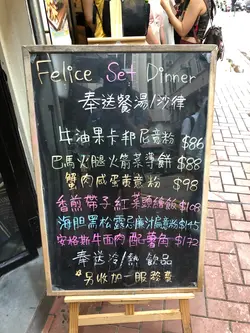 Felice Set Dinner
奉送餐湯/沙律
牛油果卡邦尼意粉 $86
巴馬火腿火箭菜薄餅 $88
蟹肉咸蛋黃意粉 $98
香煎帶子紅菜頭燴飯 $108
海胆黑松露忌廉汁扁意粉 $145
安格斯牛面肉配薯角 $172
奉送冷/熱飲品
*另收加一服務費